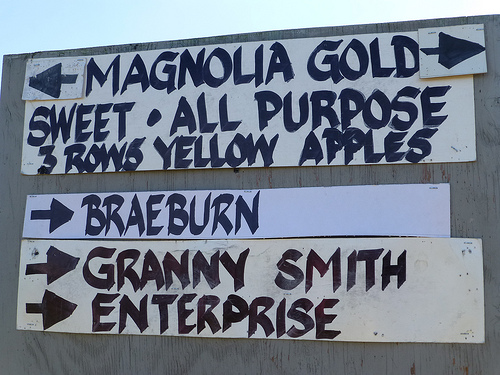 MAGNOLIA GOLD
SWEET • ALL PURPOSE
3 ROWS YELLOW APPLES
BRAEBURN
GRANNY SMITH
ENTERPRISE